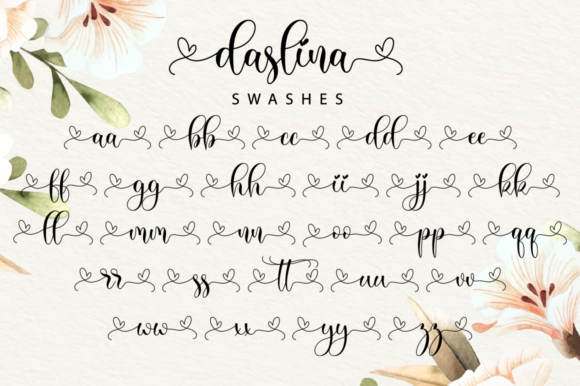 daslina
SWASHES
aa bb cc dd ee
ff gg hh ii jj kk
ll mm nn oo pp qq
rr ss tt uu vv
ww xx yy zz